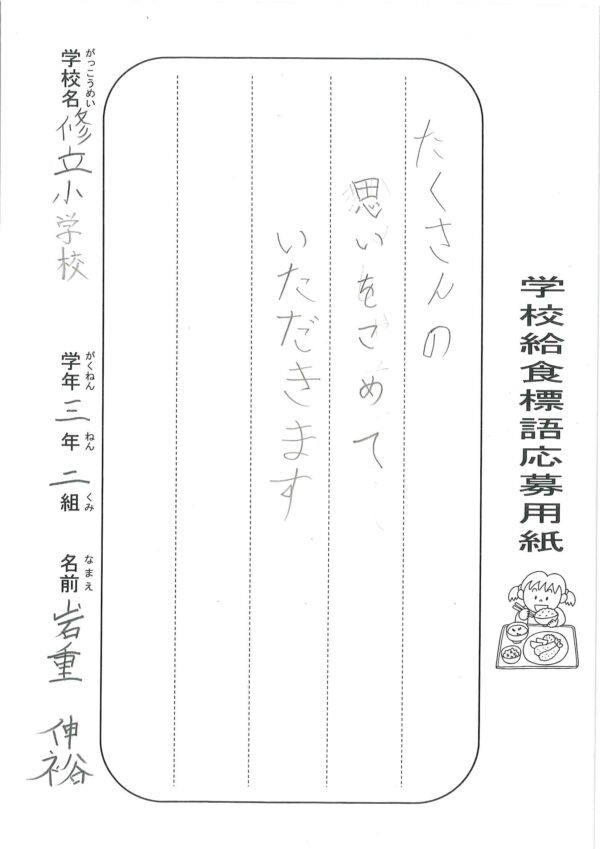 学校給食標語応募用紙
たくさんの
思いをこめて
いただきます
学校名 修立小学校 学年 三年 二組 名前 岩重 伸裕
がっこうめい がくねん ねん くみ なまえ